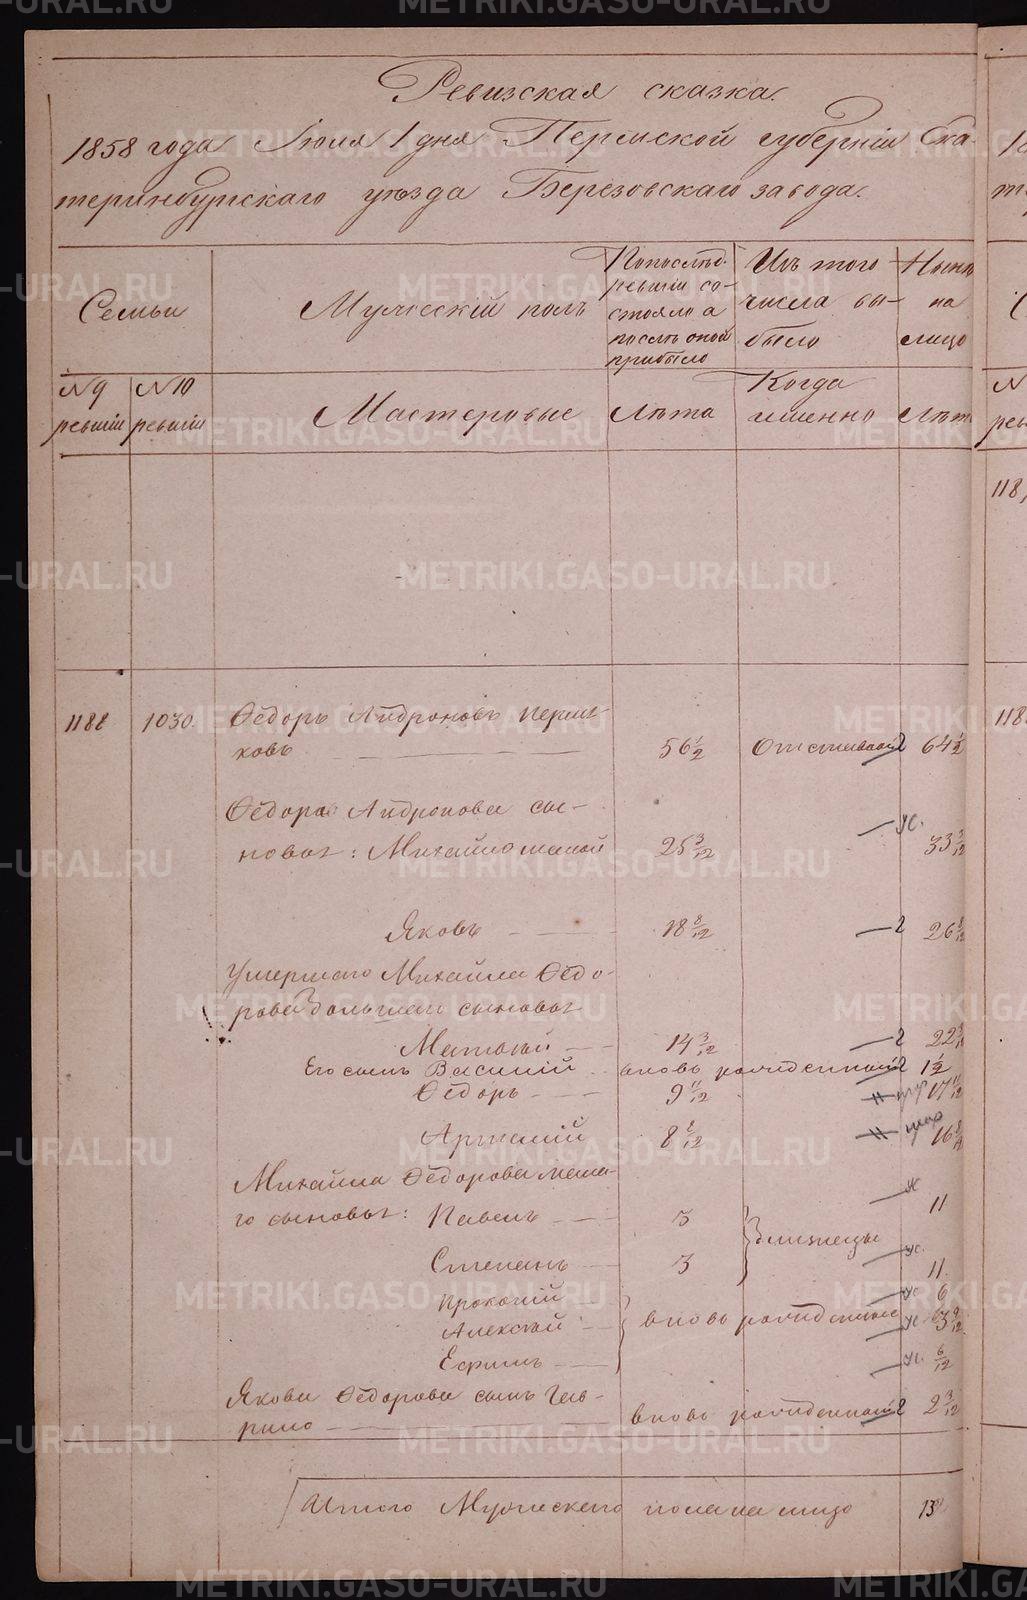 Ревизская сказка.
1858 года Июля 1 дня Пермской губерніи Ека-
теринбургскаго уѣзда Березовскаго завода.
Семьи
Мужескій полъ
По послѣд. ревизіи со-
стояло а
послѣ оной
прибыло
Изъ того
числа вы-
было
Нынѣ
на
лицо
№ 9
ревизіи
№ 10
ревизіи
Мастеровые
Лѣта
Когда
именно
Лѣта
118
1030.
Ѳедоръ Андроновъ
ковъ
56 1/2
Отставной
64 1/2
Ѳедора Андронова сы-
новья: Михайло малой
25 3/12
33 3/12
Яковъ
18 8/12
26 8/12
Умершаго Михайла Ѳедо-
рова Большаго сыновья
Матвей
14 3/12
22
Его сынъ Василій
вновь рожденный
1 1/2
Ѳедоръ
9 11/12
17 11/12
Артемій
8
16
Михайла Ѳедорова мала-
го сыновья: Павелъ
3
Близнецы
11
Степанъ
3
11
Прокопій
6
Алексѣй
вновь рожденные
3
Ефимъ
6/12
Якова Ѳедорова сынъ Гав-
рило
вновь рожденный
2 3/12
Итого Мужескаго пола на лицо
13
METRIKI.GASO-URAL.RU